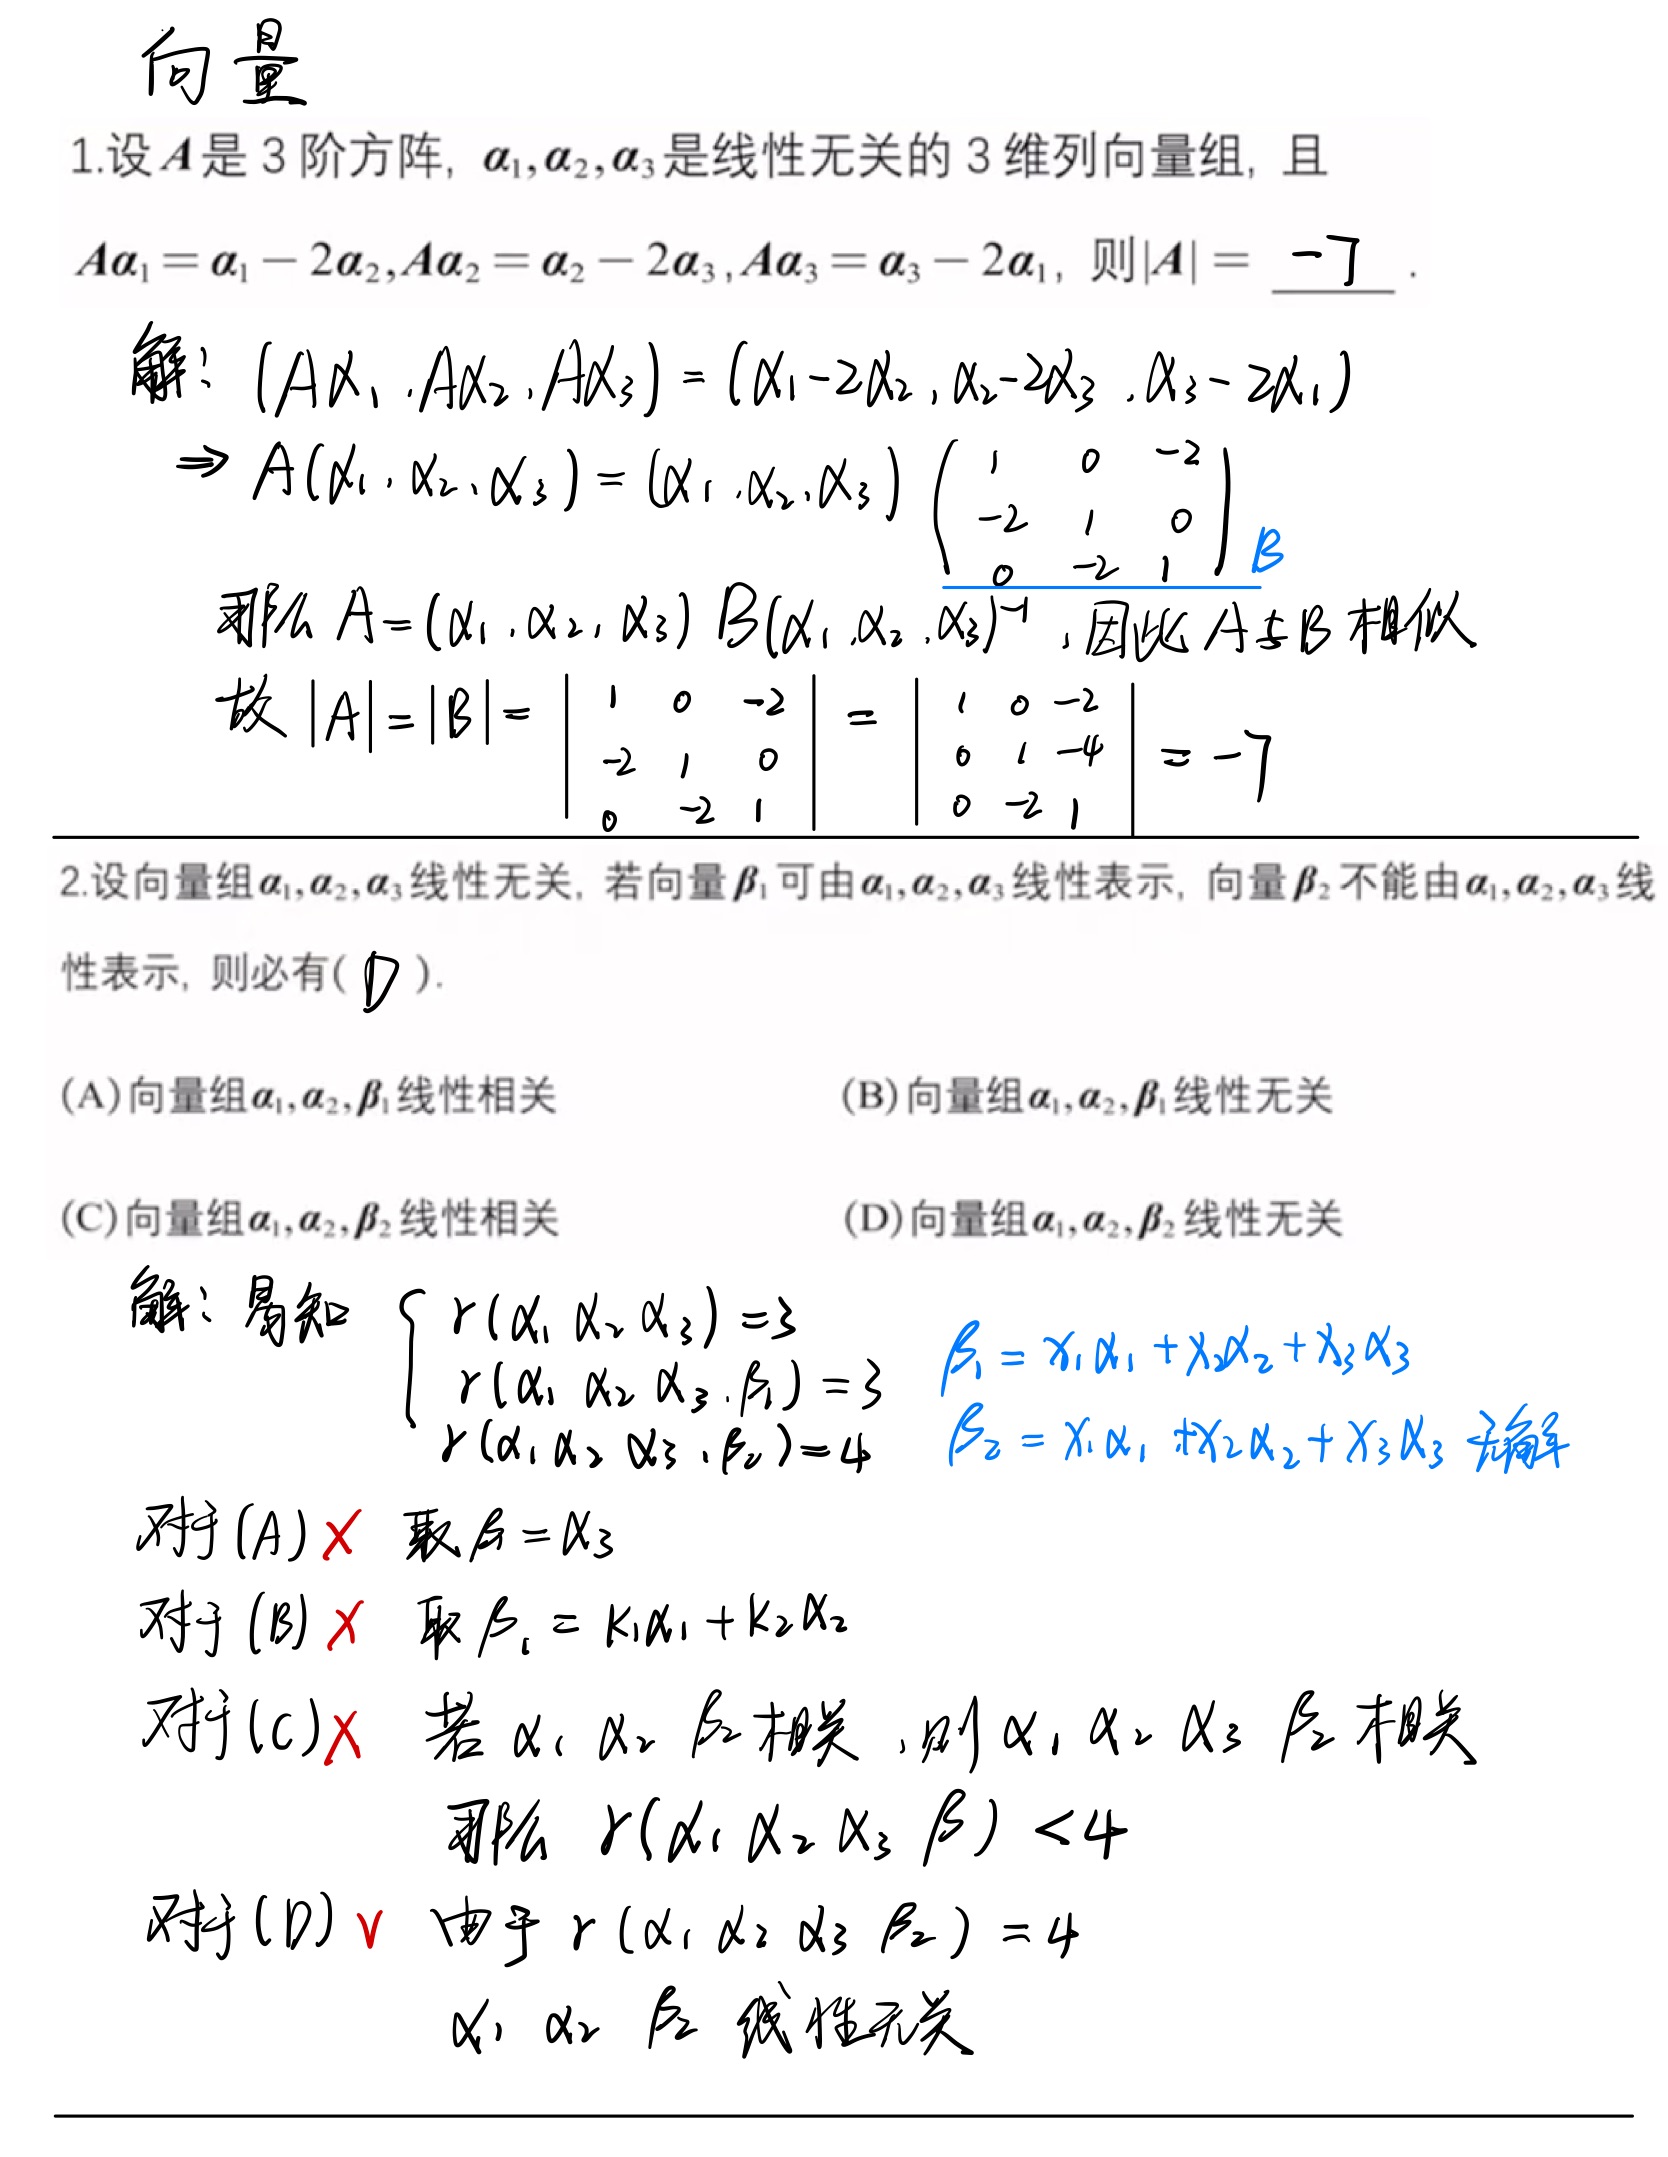 向量
1.设A是3阶方阵, α₁,α₂,α₃是线性无关的3维列向量组, 且
Aα₁=α₁-2α₂,Aα₂=α₂-2α₃,Aα₃=α₃-2α₁, 则|A|= -7 .
解: (Aα₁,Aα₂,Aα₃)=(α₁-2α₂,α₂-2α₃,α₃-2α₁)
⇒ A(α₁,α₂,α₃)=(α₁,α₂,α₃)
1 0 -2
-2 1 0
0 -2 1
B
那么 A=(α₁,α₂,α₃)B(α₁,α₂,α₃)⁻¹,因此A与B相似
故 |A|=|B|=
1 0 -2
-2 1 0
0 -2 1
=
1 0 -2
0 1 -4
0 -2 1
=-7
2.设向量组α₁,α₂,α₃线性无关, 若向量β₁可由α₁,α₂,α₃线性表示, 向量β₂不能由α₁,α₂,α₃线
性表示, 则必有( D ).
(A)向量组α₁,α₂,β₁线性相关 (B)向量组α₁,α₂,β₁线性无关
(C)向量组α₁,α₂,β₂线性相关 (D)向量组α₁,α₂,β₂线性无关
解: 易知 { r(α₁ α₂ α₃)=3
r(α₁ α₂ α₃,β₁)=3
r(α₁ α₂ α₃,β₂)=4
β₁=x₁α₁+x₂α₂+x₃α₃
β₂=x₁α₁+x₂α₂+x₃α₃ 无解
对于(A) ✗ 取β₁=α₃
对于(B) ✗ 取β₁=k₁α₁+k₂α₂
对于(C) ✗ 若 α₁ α₂ β₂ 相关,则 α₁ α₂ α₃ β₂ 相关
那么 r(α₁ α₂ α₃ β)<4
对于(D) ✓ 由于 r(α₁ α₂ α₃ β₂)=4
α₁ α₂ β₂ 线性无关